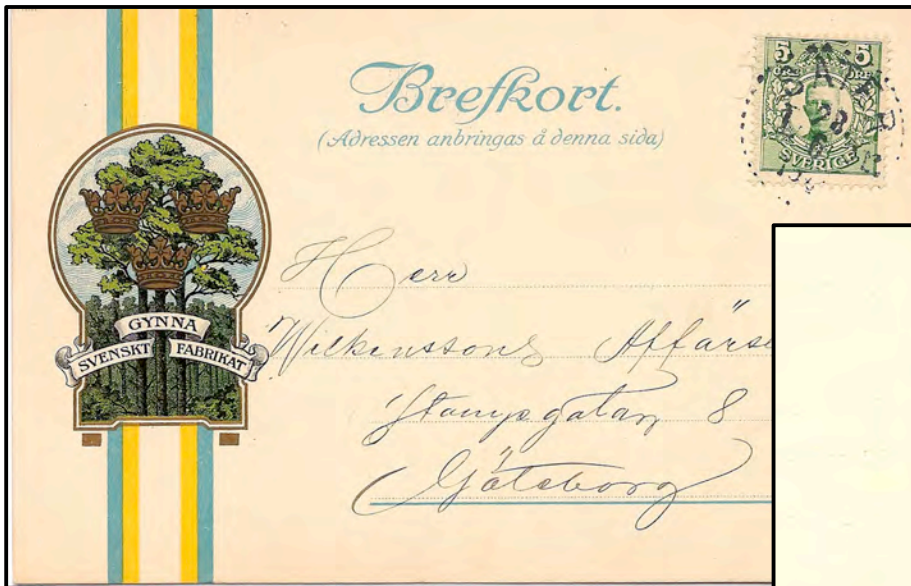 Brefkort.
(Adressen anbringas å denna sida)
5 5
ÖRE ÖRE
SVERIGE
SÄTER
28
GYNNA
SVENSKT FABRIKAT
Herr
Wilkenssons Affärs
8
Göteborg